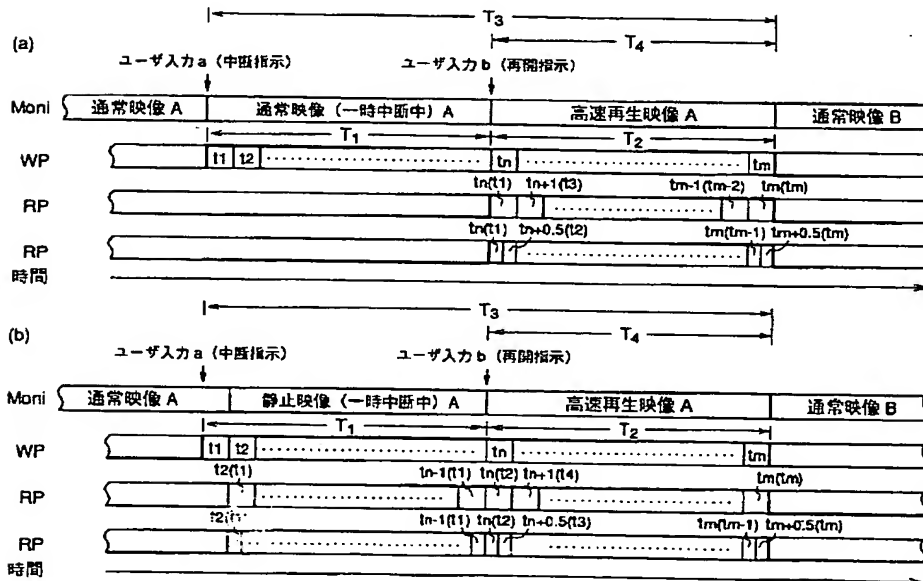 T3
(a)
T4
ユーザ入力 a (中断指示) ユーザ入力 b (再開指示)
Moni 通常映像 A 通常映像 (一時中断中) A 高速再生映像 A 通常映像 B
T1 T2
WP t1 t2 tn tm
tn(t1) tn+1(t3) tm-1(tm-2) tm(tm)
RP
tn(t1) tn+0.5(t2) tm(tm-1) tm+0.5(tm)
RP
時間
T3
(b)
T4
ユーザ入力 a (中断指示) ユーザ入力 b (再開指示)
Moni 通常映像 A 静止映像 (一時中断中) A 高速再生映像 A 通常映像 B
T1 T2
WP t1 t2 tn tm
t2(t1) tn-1(t1) tn(t2) tn+1(t4) tm(tm)
RP
tn-1(t1) tn(t2) tn+0.5(t3) tm(tm-1) tm+0.5(tm)
RP
時間